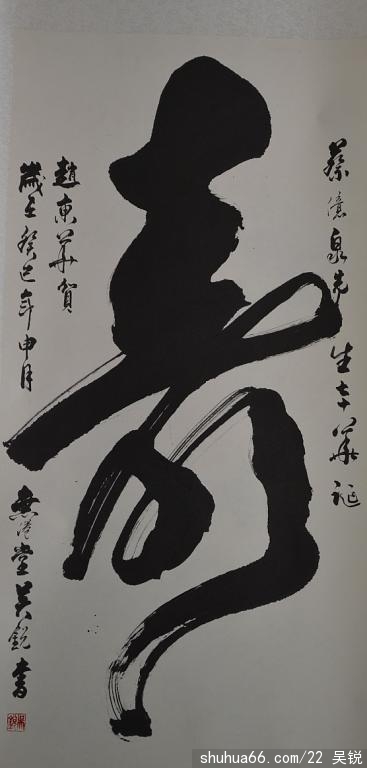 蔡億泉先生七十華誕
壽
趙東華賀
歲在癸巳年申月
堂吴銳書
shuhua66.com/22 吴锐